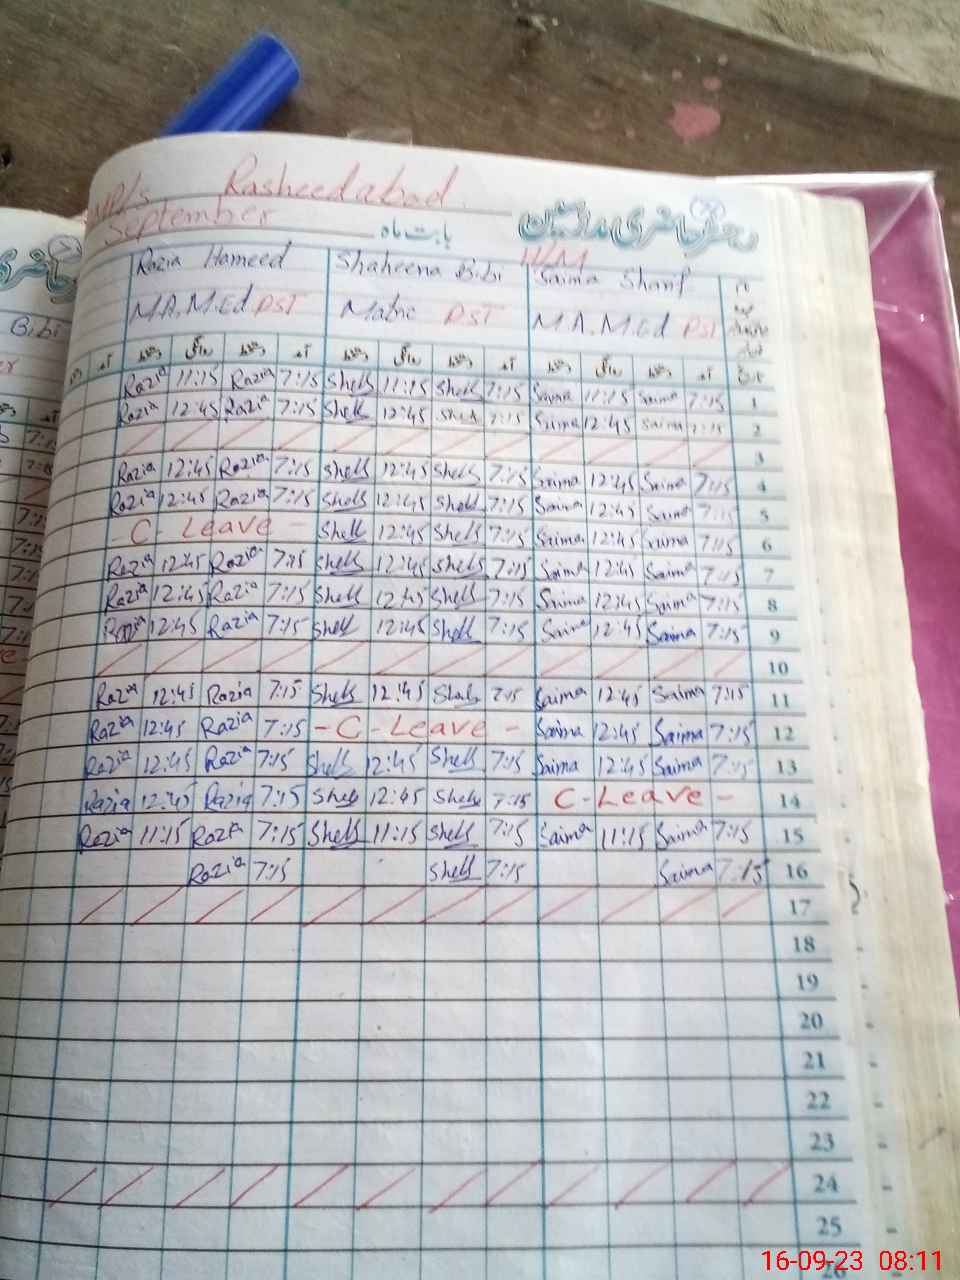 Rasheedabad
September بابت ماہ دفتر حاضری مدرسین
H/M
Razia Hameed Shaheena Bibi Saima Sharif
M.A.M.Ed PST Matric PST M.A.M.Ed PST
دستخط روانگی دستخط آمد دستخط روانگی دستخط آمد دستخط روانگی دستخط آمد
Razia 11:15 Razia 7:15 Shell 11:15 Shell 7:15 Saima 11:15 Saima 7:15 1
Razia 12:45 Razia 7:15 Shell 12:45 Shell 7:15 Saima 12:45 Saima 7:15 2
3
Razia 12:45 Razia 7:15 Shell 12:45 Shell 7:15 Saima 12:45 Saima 7:15 4
Razia 12:45 Razia 7:15 Shell 12:45 Shell 7:15 Saima 12:45 Saima 7:15 5
- C - Leave - Shell 12:45 Shell 7:15 Saima 12:45 Saima 7:15 6
Razia 12:45 Razia 7:15 Shell 12:45 Shell 7:15 Saima 12:45 Saima 7:15 7
Razia 12:45 Razia 7:15 Shell 12:45 Shell 7:15 Saima 12:45 Saima 7:15 8
Razia 12:45 Razia 7:15 Shell 12:45 Shell 7:15 Saima 12:45 Saima 7:15 9
10
Razia 12:45 Razia 7:15 Shell 12:45 Shell 7:15 Saima 12:45 Saima 7:15 11
Razia 12:45 Razia 7:15 - C - Leave - Saima 12:45 Saima 7:15 12
Razia 12:45 Razia 7:15 Shell 12:45 Shell 7:15 Saima 12:45 Saima 7:15 13
Razia 12:45 Razia 7:15 Shell 12:45 Shell 7:15 C - Leave - 14
Razia 11:15 Razia 7:15 Shell 11:15 Shell 7:15 Saima 11:15 Saima 7:15 15
Razia 7:15 Shell 7:15 Saima 7:15 16
17
18
19
20
21
22
23
24
25
26
Bibi
16-09-23 08:11